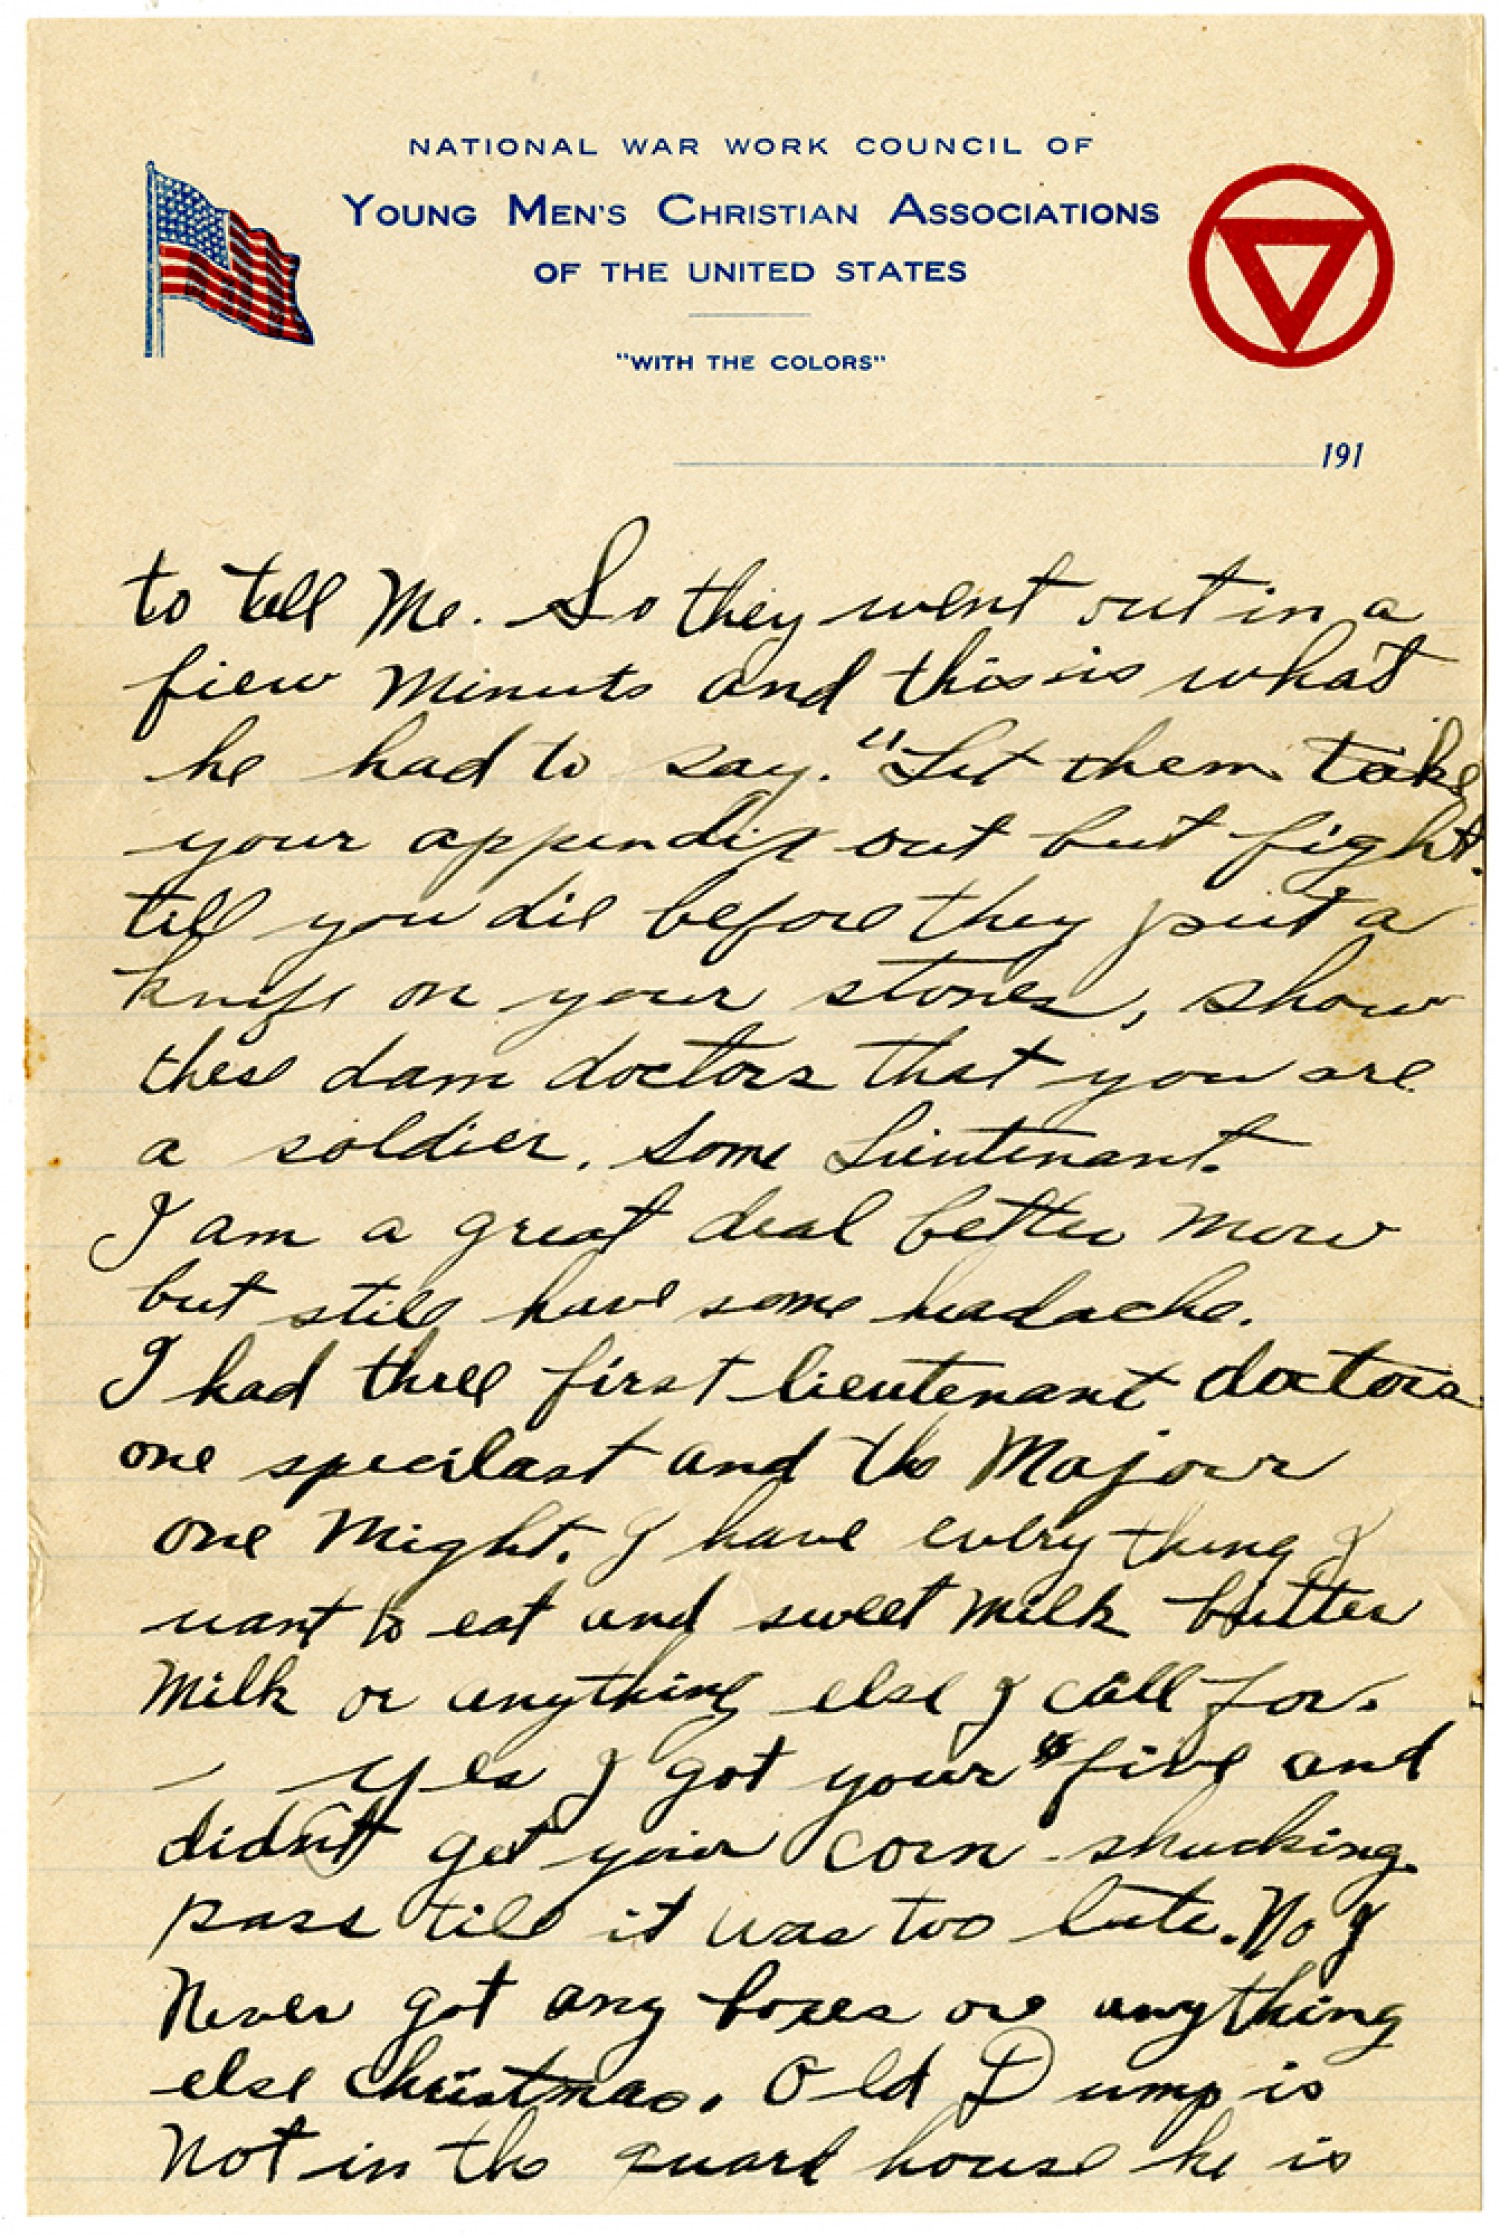 NATIONAL WAR WORK COUNCIL OF
YOUNG MEN'S CHRISTIAN ASSOCIATIONS
OF THE UNITED STATES
"WITH THE COLORS"
191
to tell Me. So they went out in a
fiew Minuts and this is what
he had to say. "Let them take
your appendix out but fight
till you die before they put a
knife on your stones, show
these dam doctors that you are
a soldier. Some Lieutenant.
I am a great deal better now
but still have some headache.
I had three first lieutenant doctors
one specilast and the Majour
one Night. I have every thing I
want to eat and sweet Milk butter
Milk or anything else I call for.
— Yes I got your $ five and
didn't get your corn shucking
pass till it was too late. No I
Never got any boxes or anything
else christmas. Old Dump is
Not in the guard house he is